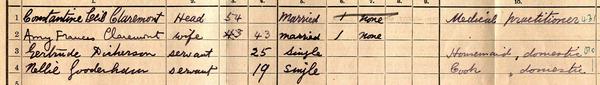 1 Constantine Cecil Claremont Head 54 Married 1 none Medical Practitioner
2 Amy Frances Claremont wife 43 43 married 1 none
3 Gertrude Dickerson servant 25 Single Housemaid, domestic
4 Nellie Gooderham servant 19 Single Cook, domestic